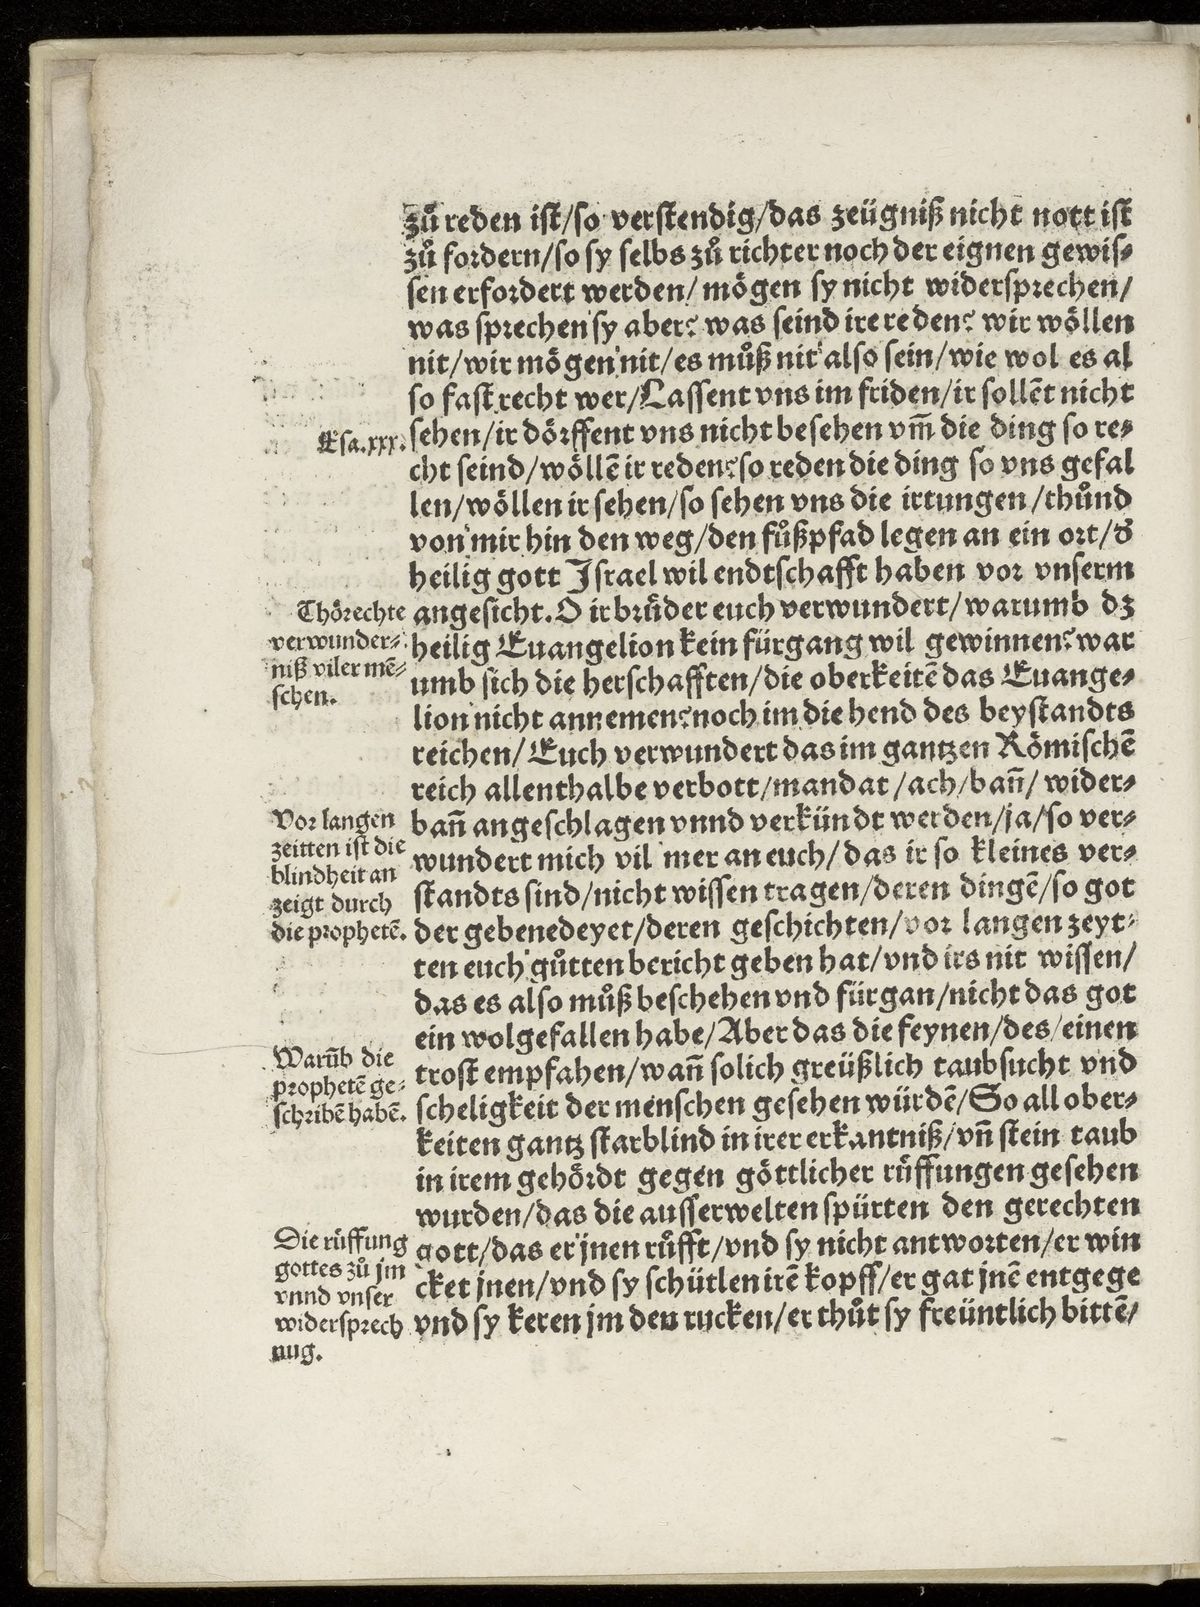 zů reden ist/so verstendig/das zeügniß nicht nott ist
zů fordern/so sy selbs zů richter noch der eignen gewis⸗
sen erfordert werden/mögen sy nicht widersprechen/
was sprechen sy aber? was seind ire reden? wir wöllen
nit/wir mögen nit/es můß nit also sein/wie wol es al
so fast recht wer/Lassent vns im friden/ir sollēt nicht
Esa.xxx.
sehen/ir dörffent vns nicht besehen vm̄ die ding so re⸗
cht seind/wöllē ir reden?so reden die ding so vns gefal
len/wöllen ir sehen/so sehen vns die irtungen/thůnd
von mir hin den weg/den fůßpfad legen an ein ort/d'
heilig gott Israel wil endtschafft haben vor vnserm
Thörechte
verwunder⸗
niß viler mē⸗
schen.
angesicht.O ir brůder euch verwundert/warumb dz
heilig Euangelion kein fürgang wil gewinnen?war
umb sich die herschafften/die oberkeitē das Euange⸗
lion nicht annemen?noch im die hend des beystandts
reichen/Euch verwundert das im gantzen Römischē
reich allenthalbe verbott/mandat/ach/bañ/wider⸗
Vor langen
zeitten ist die
blindheit an
zeigt durch
die prophetē.
bañ angeschlagen vnnd verkündt werden/ja/so ver⸗
wundert mich vil mer an euch/das ir so kleines ver⸗
standts sind/nicht wissen tragen/deren dingē/so got
der gebenedeyet/deren geschichten/vor langen zeyt⸗
ten euch gůtten bericht geben hat/vnd irs nit wissen/
das es also můß beschehen vnd fürgan/nicht das got
ein wolgefallen habe/Aber das die feynen/des/einen
Warūb die
prophetē ge⸗
schribē habē.
trost empfahen/wañ solich greüßlich taubsucht vnd
scheligkeit der menschen gesehen würdē/So all ober⸗
keiten gantz starblind in irer erkantniß/vñ stein taub
in irem gehördt gegen göttlicher růffungen gesehen
wurden/das die ausserwelten spürten den gerechten
Die rüffung
gottes zů jm
vnnd vnser
widersprech
nug.
gott/das er jnen růfft/vnd sy nicht antworten/er win
cket jnen/vnd sy schütlen irē kopff/er gat jnē entgege
vnd sy keren jm den rucken/er thůt sy freüntlich bittē/